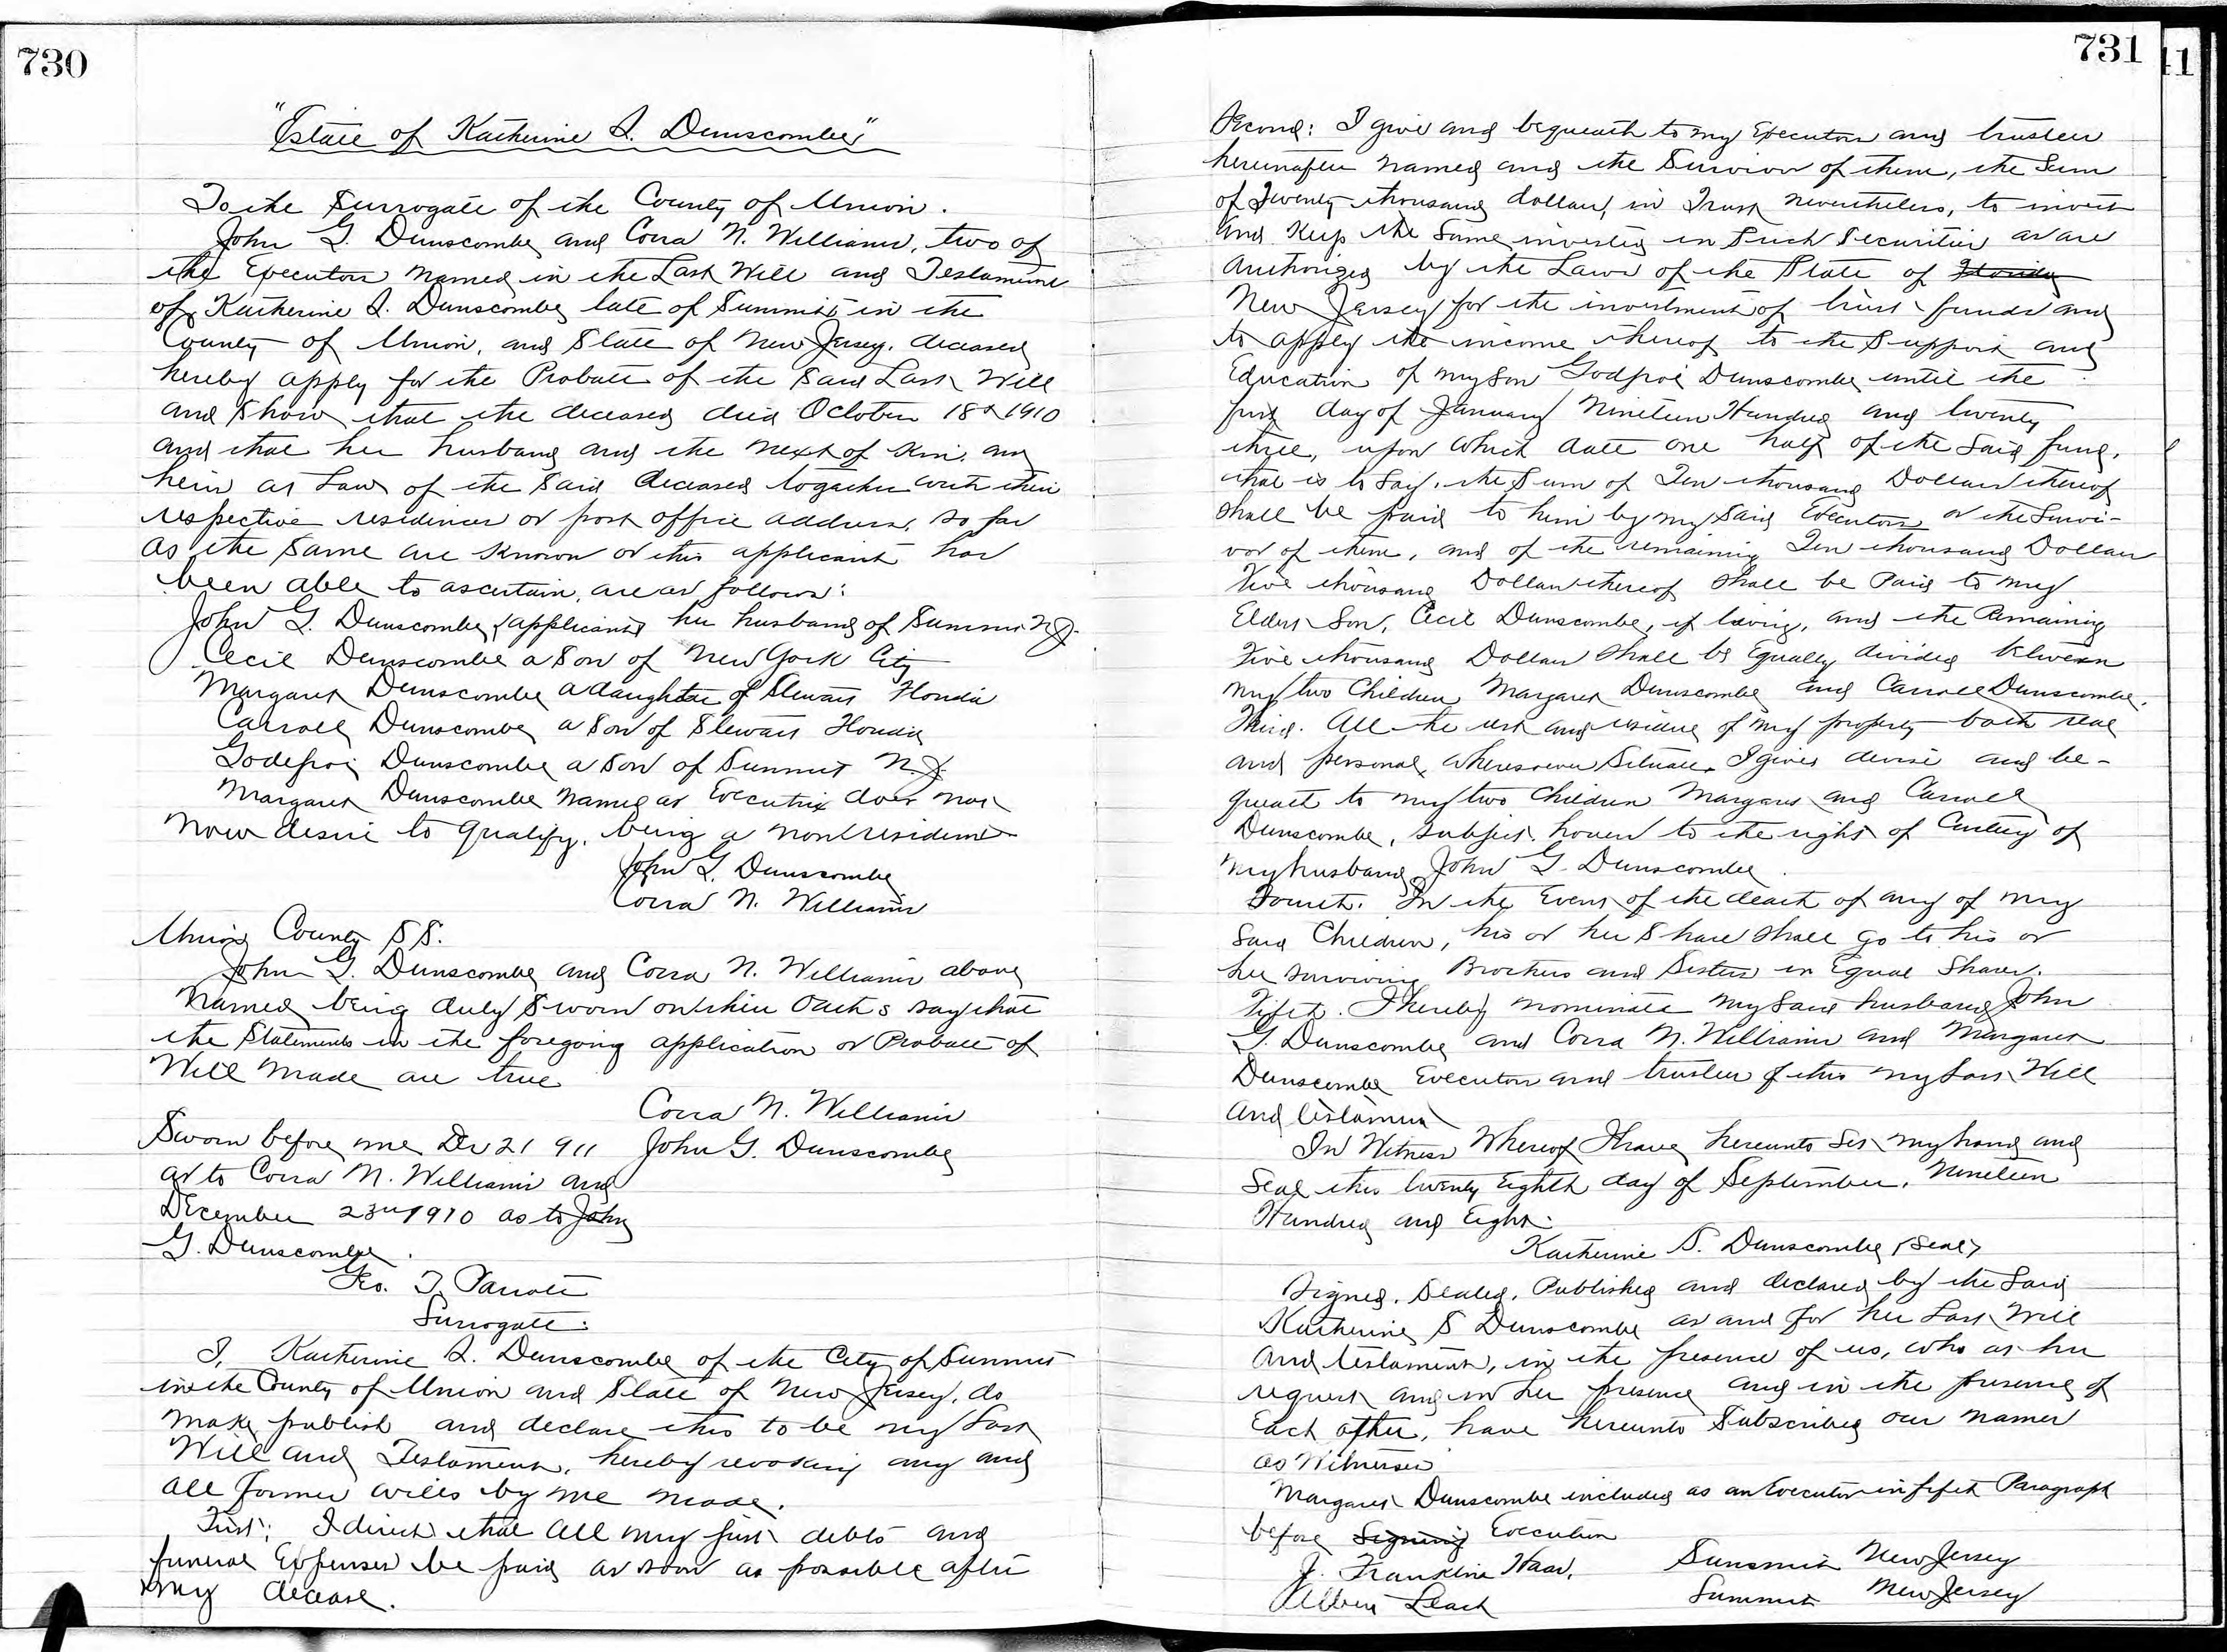 730
"Estate of Katherine S. Dunscombe"
To the Surrogate of the County of Union.
John G. Dunscombe and Corra N. Williams, two of
the Executors named in the Last Will and Testament
of Katherine S. Dunscombe late of Summit in the
County of Union, and State of New Jersey, deceased
hereby apply for the Probate of the said Last Will
and show that the deceased died October 18th 1910
and that her husband and the next of kin, and
heirs at Law of the said deceased together with their
respective residences or post office address, so far
as the same are known or this applicant has
been able to ascertain, are as follows:
John G. Dunscombe, (applicant) her husband of Summit N.J.
Cecil Dunscombe a son of New York City
Margaret Dunscombe a daughter of Stewart Florida
Carroll Dunscombe a son of Stewart Florida
Godefroi Dunscombe a son of Summit N.J.
Margaret Dunscombe named as Executrix does not
now desire to qualify, being a nonresident
John G. Dunscombe
Corra N. Williams
Union County SS.
John G. Dunscombe and Corra N. Williams above
named being duly sworn on their Oaths say that
the Statements in the foregoing application or Probate of
Will made are true
Corra N. Williams
Sworn before me Dec 21 911 John G. Dunscombe
as to Corra N. Williams and
December 23rd 1910 as to John
G. Dunscombe.
Geo. T. Parrott
Surrogate.
I, Katherine S. Dunscombe of the City of Summit
in the County of Union and State of New Jersey, do
make publish and declare this to be my Last
Will and Testament, hereby revoking any and
all former wills by me made.
First: I direct that all my just debts and
funeral Expenses be paid as soon as possible after
my decease.
731
Second: I give and bequeath to my Executors and trustees
hereinafter named and the Survivor of them, the Sum
of Twenty thousand dollars, in Trust nevertheless, to invest
and Keep the same invested in such securities as are
authorized by the Laws of the State of Florida
New Jersey for the investment of trust funds and
to apply the income thereof to the support and
Education of my son Godfroi Dunscombe until the
first day of January Nineteen Hundred and twenty
three, upon which date one half of the said fund,
that is to say, the Sum of Ten thousand Dollars thereof
shall be paid to him by my said Executors or the Survi-
vor of them, and of the remaining Ten thousand Dollars
Five thousand Dollars thereof shall be Paid to my
Eldest Son, Cecil Dunscombe, if living, and the Remaining
Five thousand Dollars shall be Equally divided between
my two Children Margaret Dunscombe and Carroll Dunscombe.
Third. All the rest and residue of my property both real
and personal, wheresoever situate, I give, devise and be-
queath to my two Children Margaret and Carroll
Dunscombe, subject however to the right of Curtesy of
my husband John G. Dunscombe.
Fourth. In the Event of the death of any of my
said Children, his or her Share shall go to his or
her surviving Brothers and Sisters in Equal Shares.
Fifth. I hereby nominate my said husband John
G. Dunscombe and Corra N. Williams and Margaret
Dunscombe Executors and trustees of this my Last Will
and testament
In Witness Whereof I have hereunto set my hand and
Seal this twenty Eighth day of September, Nineteen
Hundred and Eight.
Katherine S. Dunscombe (Seal)
Signed, Sealed, Published and declared by the said
Katherine S Dunscombe as and for her Last Will
and testament, in the presence of us, who at her
request and in her presence and in the presence of
Each other, have hereunto subscribed our names
as Witnesses
Margaret Dunscombe included as an Executor in fifth Paragraph
before Signing Execution
J. Franklin Summit New Jersey
Albert Leach Summit New Jersey